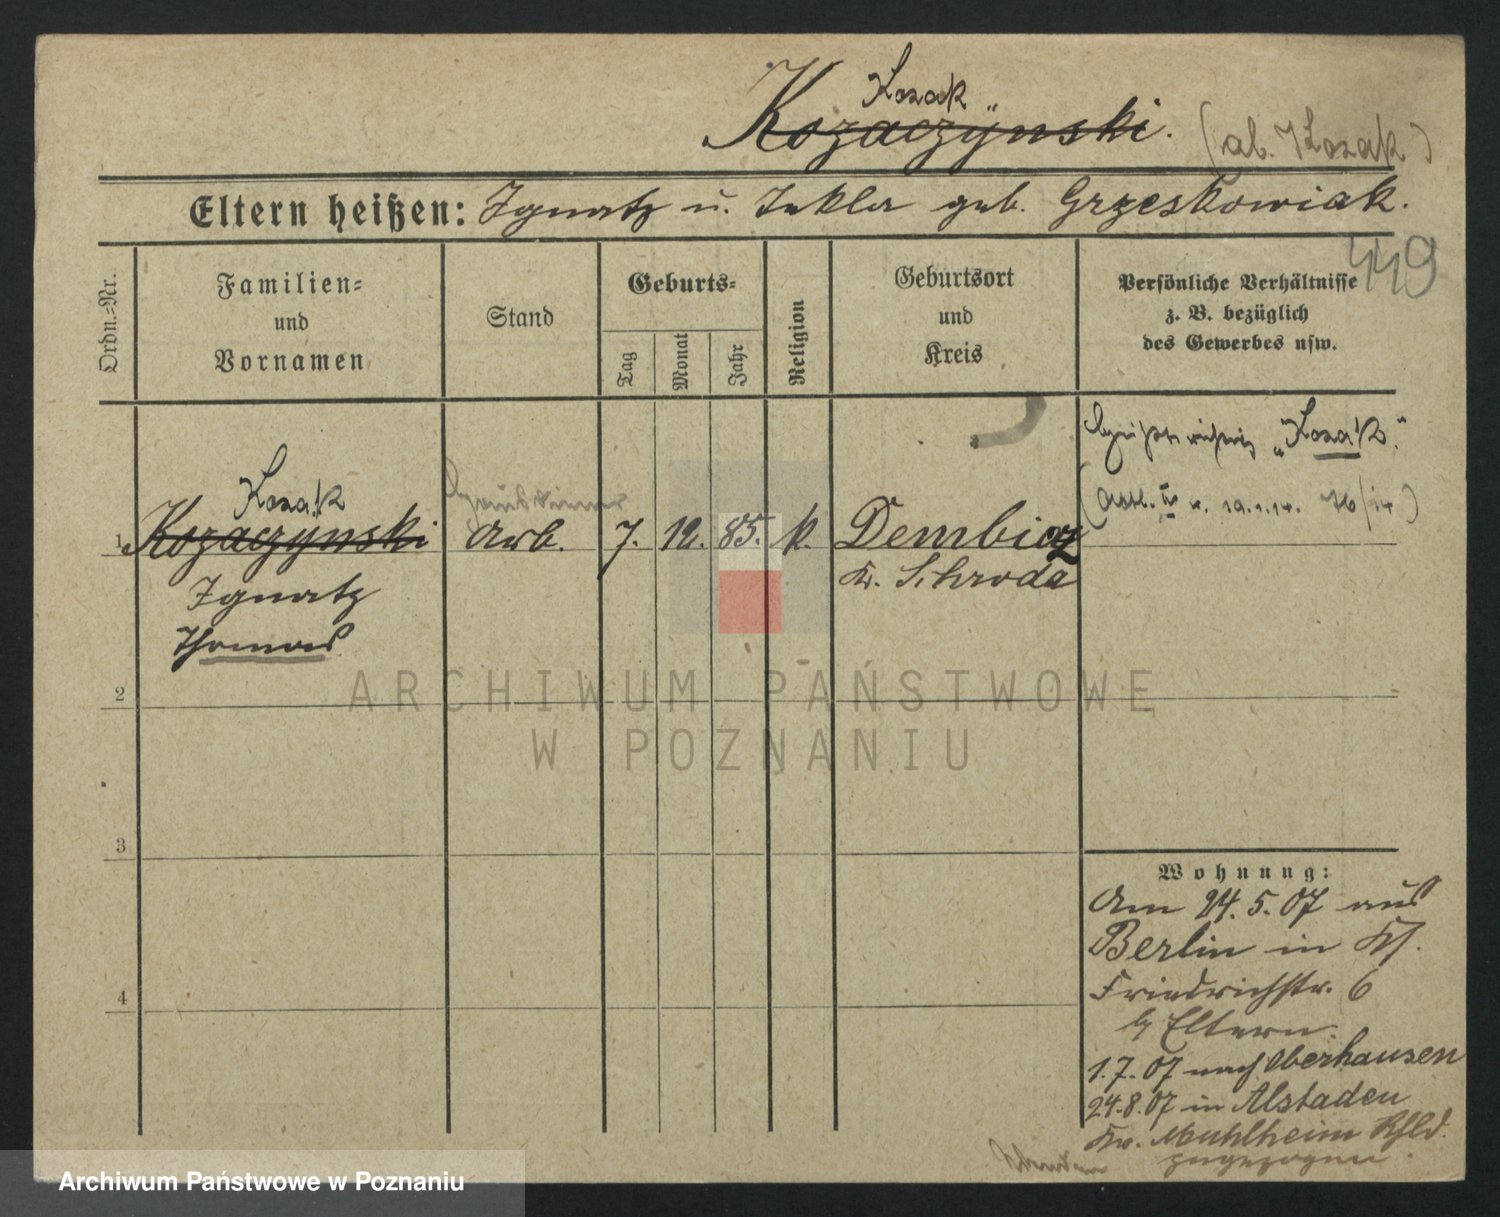 Kozak
Kozaczÿnski. (al. Kozak)
Eltern heißen: Ignatz u. Tekla geb. Grzeskowiak.
449
Ordn.-Nr.
Familien-
und
Vornamen
Stand
Geburts-
Tag
Monat
Jahr
Religion
Geburtsort
und
Kreis
Persönliche Verhältnisse
z. B. bezüglich
des Gewerbes usw.
"Kozak."
10.1.14. 76/14)
Kozak
1 Kozaczynski Arb. 7. 12. 85. k. Dembicz
Ignatz Kr. Schroda
Thomas
2
3
4
Wohnung:
Am 24. 5. 07 aus
Berlin in
Friedrichstr. 6
b/ Eltern.
1. 7. 07 nach Oberhausen
24. 8. 07 in Alstaden
Kr. Mühlheim Rhld.
zugezogen.
ARCHIWUM PAŃSTWOWE
W POZNANIU
Archiwum Państwowe w Poznaniu